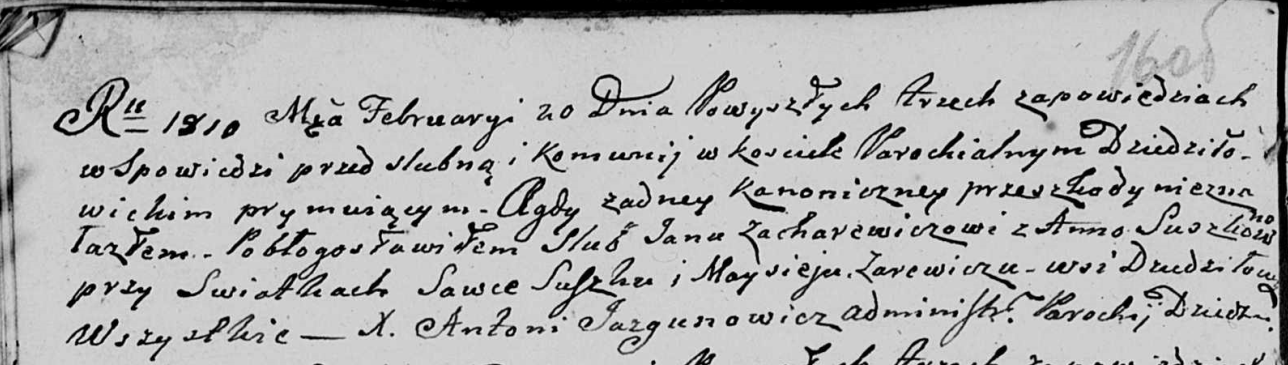 160б
Ru 1810 Mca Februaryi 20 Dnia Powyszłych trzech zapowiedziach
w Spowiedzi przed slubną i Komunij w kosciele Parochialnym Dziedziło-
wickim prymuiącym - A gdy zadney Kanoniczney przeszkody niezna
łazłem - Pobłogosławiłem Slub Janu Zacharewiczowi z Anno Suszkowno
przy Swiatkach Sawce Suszku i Maysieju Zarewiczu - wsi Dziedziłowicz
Wszystkie — X. Antoni Jazgunowicz administr. Parochij Dziedz.